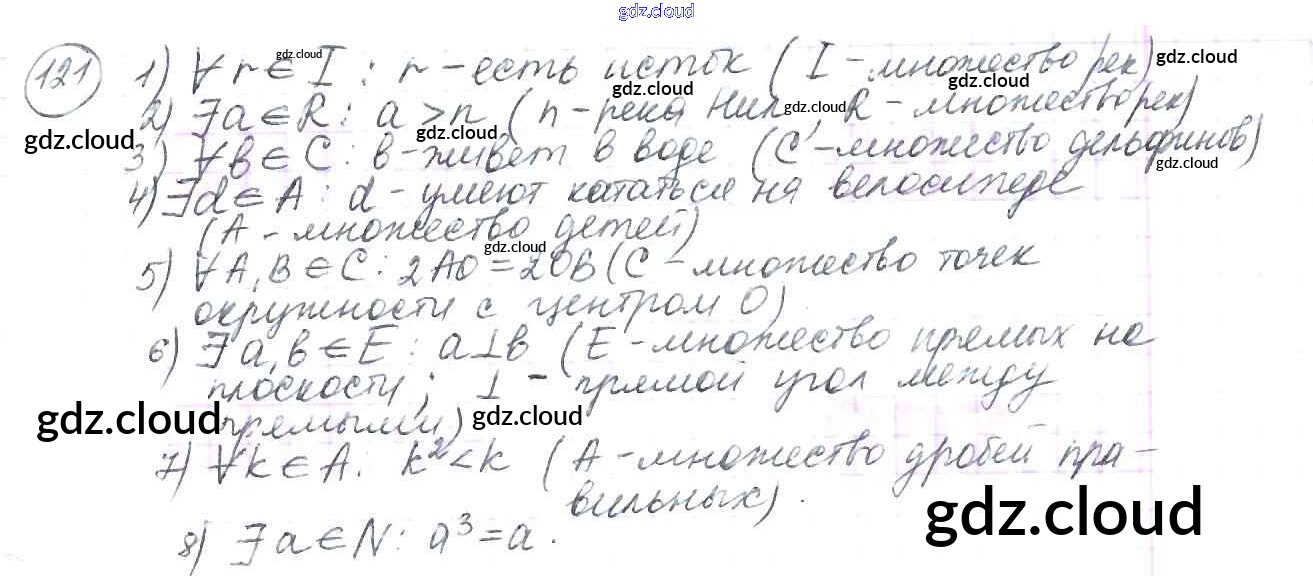 gdz.cloud
121 1) ∀ r ∈ I : r – есть исток ( I – множество рек)
2) ∃ a ∈ R : a > n ( n – река Нил, R – множество рек)
3) ∀ в ∈ C : в – живёт в воде ( C – множество дельфинов)
4) ∃ d ∈ A : d – умеют кататься на велосипеде
(A – множество детей)
5) ∀ A, B ∈ C : 2AO = 2OB (C – множество точек
окружности с центром O)
6) ∃ a, в ∈ E : a ⊥ в (E – множество прямых на
плоскости ; ⊥ – прямой угол между
прямыми)
7) ∀ k ∈ A : k² < k ( A – множество дробей пра–
вильных) .
8) ∃ a ∈ N : a³ = a .
gdz.cloud
gdz.cloud
gdz.cloud
gdz.cloud
gdz.cloud
gdz.cloud
gdz.cloud
gdz.cloud
gdz.cloud
gdz.cloud
gdz.cloud
gdz.cloud